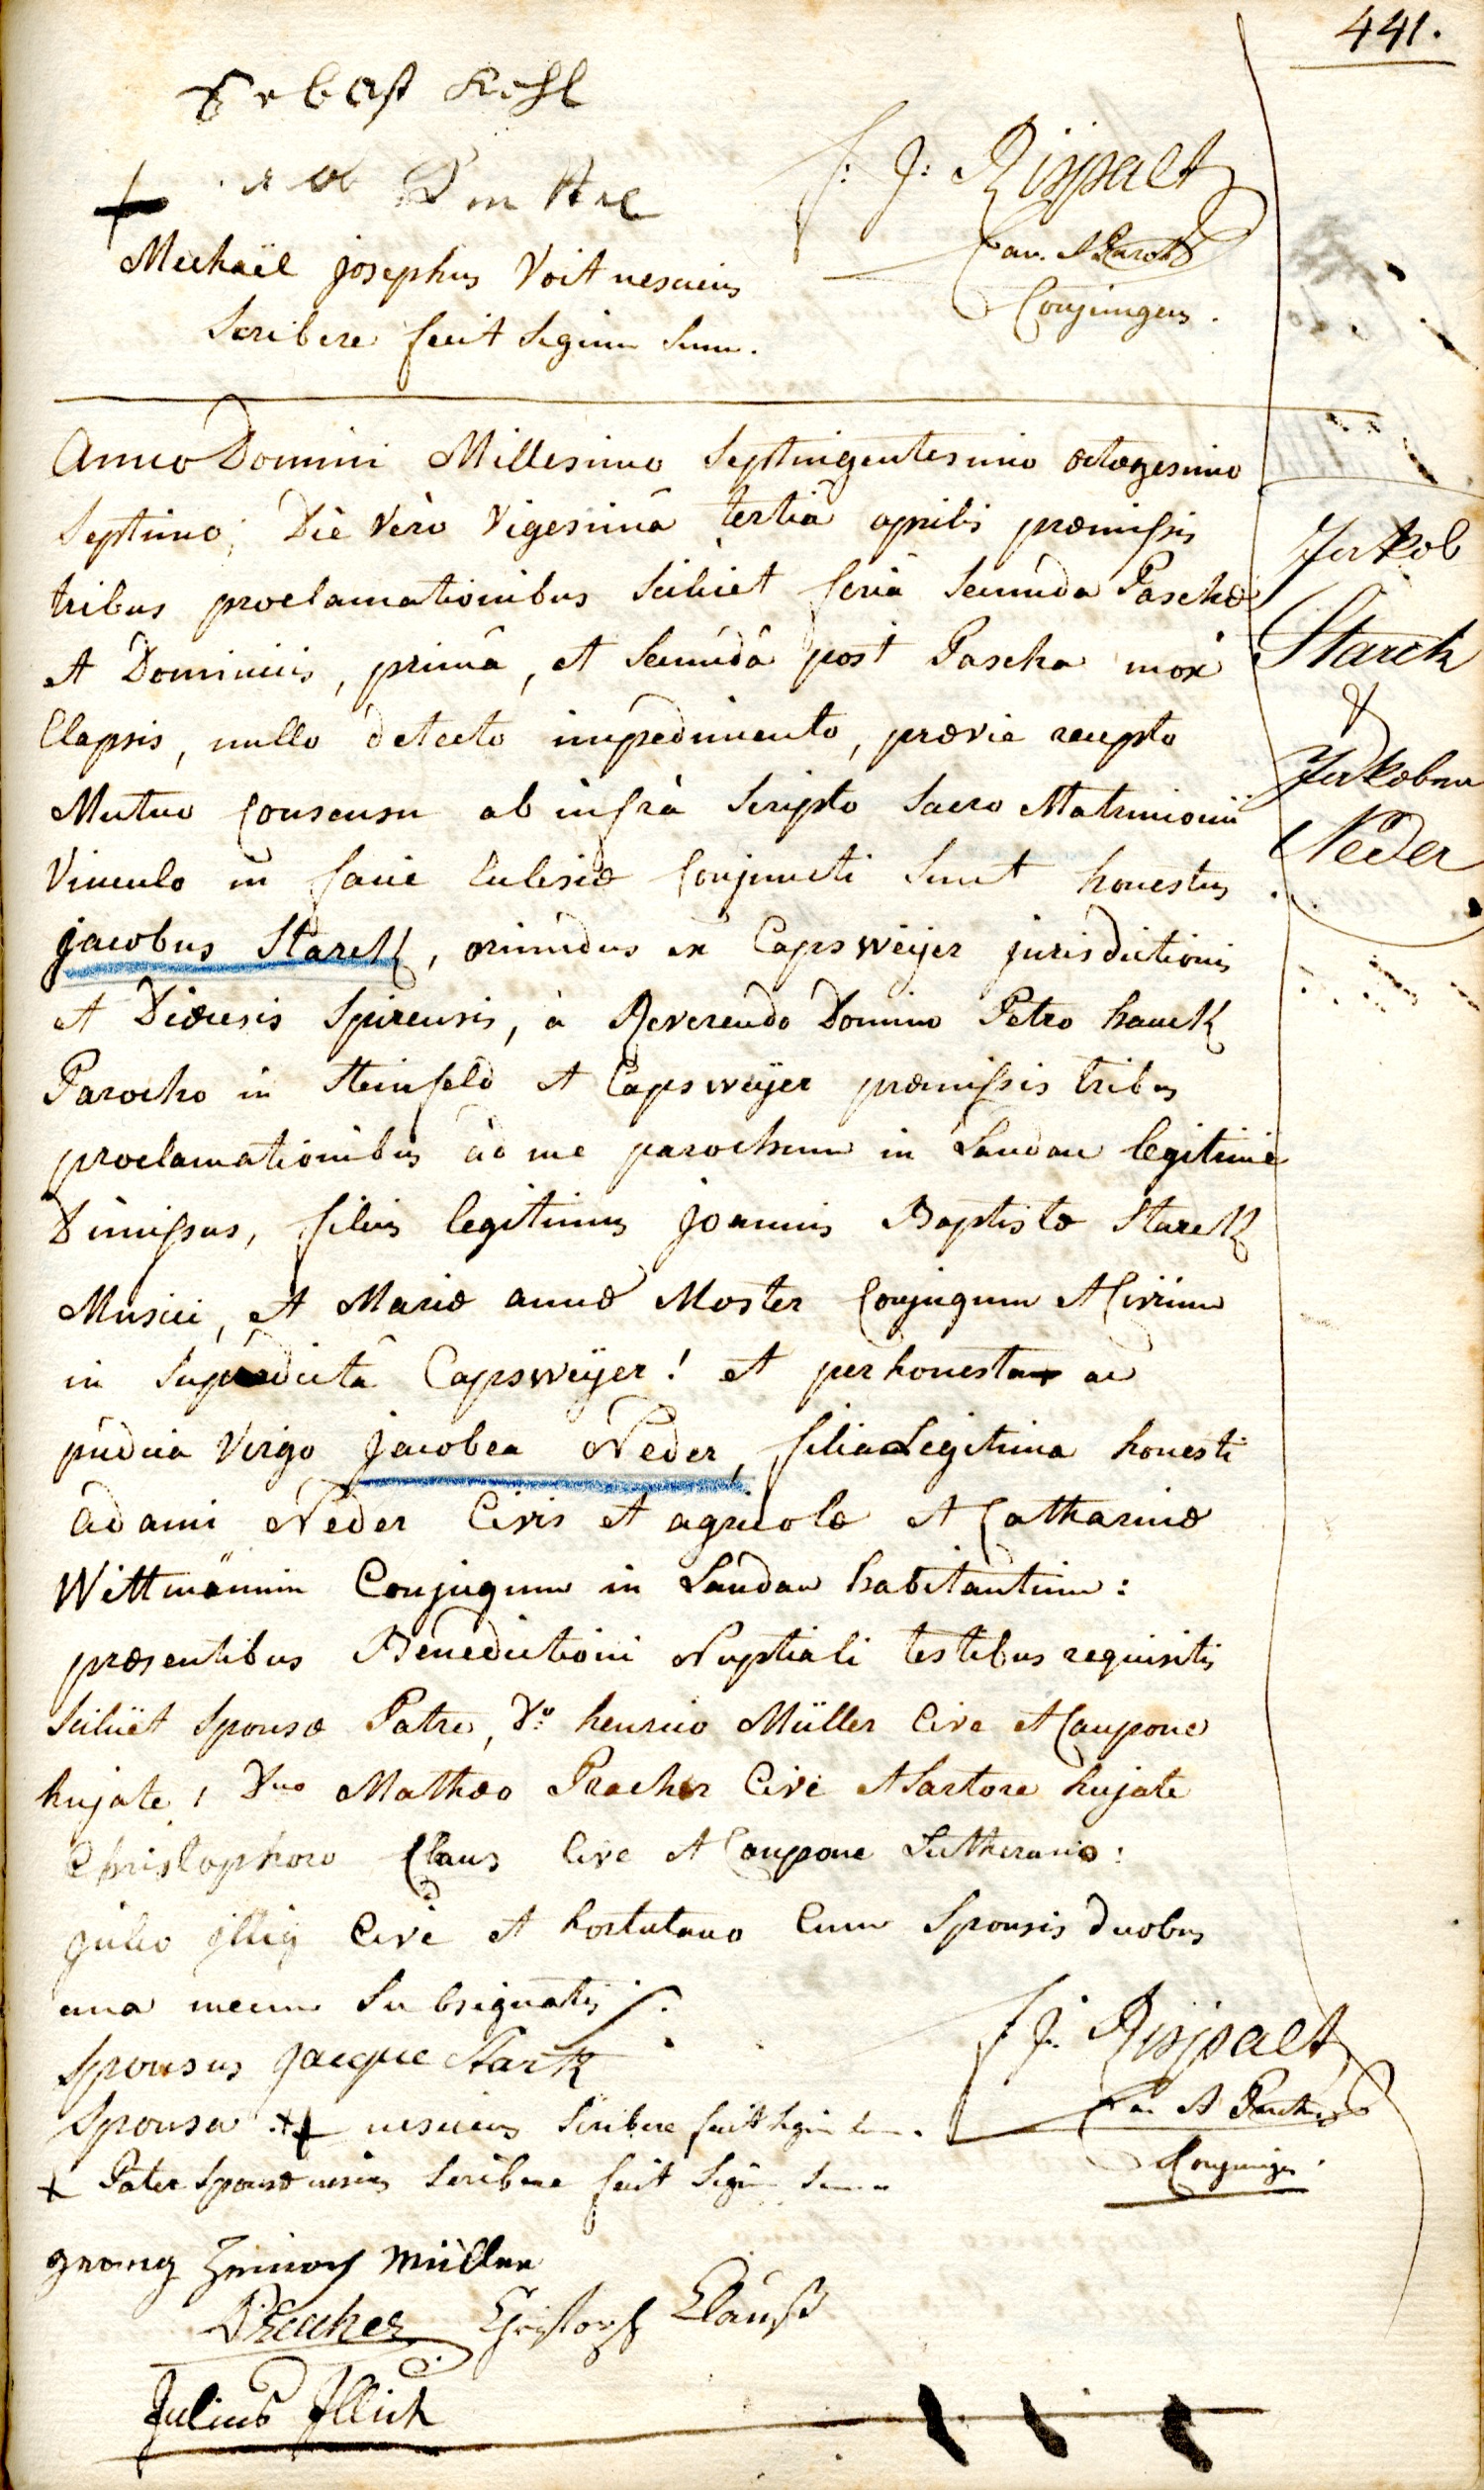 441.
Sebast Kehl
F: J: Risspalt
Can. & Paroch
Michaël josephus Voit nesciens
Conjungens.
Scribere fecit Signum Suum.
Anno Domini Millesimo Septingentesimo octogesimo
Septimo, Die Verò Vigesimâ tertiâ aprilis præmissis
tribus proclamationibus Scilicet feriâ Secunda Paschæ
et Dominicis, primâ, et Secundâ post Pascha mox
Elapsis, nullo detecto impedimento, prævie recepto
Mutuo Consensu ab infrà Scripto Sacro Matrimonii
Vinculo in facie Ecclesiæ Conjuncti Sunt honestus
jacobus Starck, oriundus ex Capsweijer jurisdictionis
et Diœcesis Spirensis, à Reverendo Domino Petro hauck
Parocho in Steinfeld et Capsweijer præmissis tribus
proclamationibus ad me parochum in Landau legitimè
Dimissus, filius legitimus joannis Baptistæ Starck
Musici, et Mariæ annæ Moster Conjugum et Civium
in Supradictâ Capsweijer! et perhonesta ac
pudica Virgo jacobea Neder, filia Legitima honesti
adami Neder Civis et agricolæ et Catharinæ
Wittmännin Conjugum in Landau habitantium:
præsentibus Benedictioni Nuptiali testibus requisitis
Scilicet Sponsæ Patre, Dno henrico Müller Cive et Caupone
hujate, Dno Mathæo Pracher Cive et Sartore hujate
Christophoro Claus Cive et Caupone Lutherano:
julio jllig Cive et hortulano Cum Sponsis duobus
una mecum Subsignatis.
Sponsus jacque Stark
F: J: Risspalt
Can & Paroch
Sponsa + nesciens Scribere fecit Signum Suum.
Conjungens.
+ Pater Sponsæ nesciens Scribere fecit Signum Suum
georg Heinrich Müller
Pracher Christoph Clauß
Julius Illich
Jakob
Starck
&
Jakobea
Neder